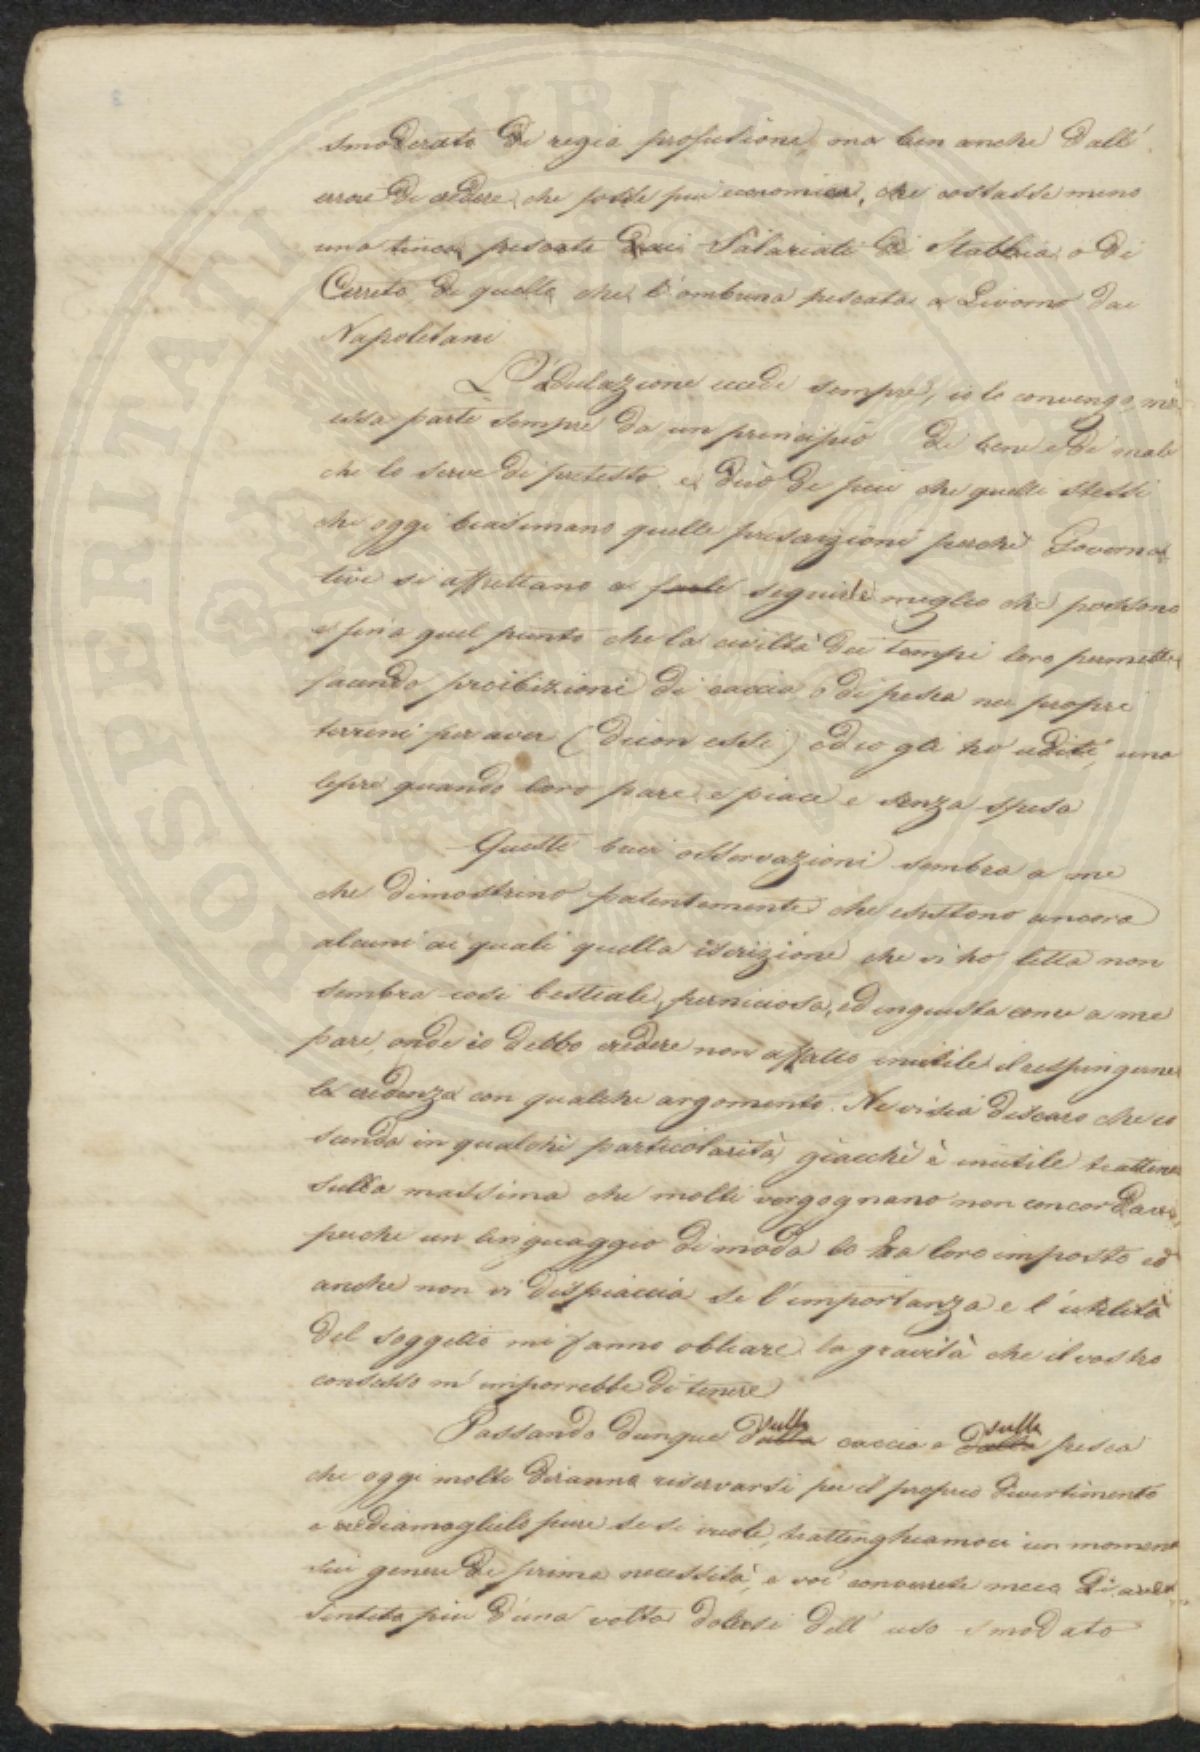 smoderato di regia profusione, ma ben anche dall'
errore di credere che fosse più economica, che costasse meno
una tinca pescata dai Salariati di Stabbia o di
Cerreto di quella che l'ombrina pescata a Livorno dai
Napoletani
L'Adulazione eccede sempre, io lo convengo, ma
essa parte sempre da un principio di bene e di male
che le serve di pretesto e dirò di più che quelli stessi
che oggi biasimano quelle prescrizioni perchè Governa
tive si affrettano a farle seguirle meglio che possono
e fin a quel punto che la civiltà dei tempi loro permette
facendo proibizioni di caccia o di pesca nei propri
terreni per aver (dicon essi) ed io gli ho uditi, una
lepre quando loro pare e piace e senza spesa
Queste brevi osservazioni sembra a me
che dimostrino patentemente che esistono ancora
alcuni ai quali quella iscrizione che vi ho letta non
sembra così bestiale, perniciosa, ed ingiusta come a me
pare, onde io debbo credere non affatto inutile il respingerne
la credenza con qualche argomento. Ne vi sia discaro che io
scenda in qualche particolarità giacchè è inutile trattenersi
sulla massima che molti vergognano non concordare,
perchè un linguaggio di moda lo ha loro imposto ed
anche non vi dispiaccia se l'importanza e l'utilità
del soggetto mi fanno obliare la gravità che il vostro
consesso m'imporrebbe di tenere
Passando dunque dalla sulla caccia e dalla sulla pesca
che oggi molti diranno riservarsi per il proprio divertimento
e crediamoglielo pure se si vuole, trattenghiamoci un momento
sui generi di prima necessità, e voi converrete meco di aver
sentito più d'una volta dolersi dell'uso smodato
PROSPERITATI PUBLICAE